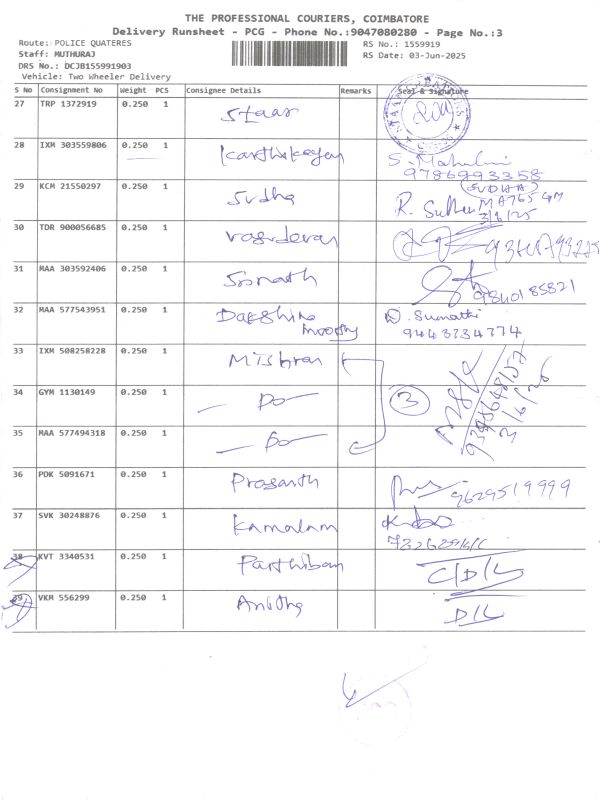 THE PROFESSIONAL COURIERS, COIMBATORE
Delivery Runsheet - PCG - Phone No.:9047080280 - Page No.:3
Route: POLICE QUATERES
RS No.: 1559919
Staff: MUTHURAJ
RS Date: 03-Jun-2025
DRS No.: DCJB155991903
Vehicle: Two Wheeler Delivery
S No Consignment No Weight PCS Consignee Details Remarks Seal & Signature
27 TRP 1372919 0.250 1 Staar
28 IXM 303559806 0.250 1 Karthikeyan S. Mahalmi
9786993358
29 KCM 21550297 0.250 1 Sudha R. Sudha SUDHA
3/6/25
30 TDR 900056685 0.250 1 Vasudevan
31 MAA 303592406 0.250 1 Srinath 9840185821
32 MAA 577543951 0.250 1 Dakshina D. Sumathi
moorthy 9443234774
33 IXM 508258228 0.250 1 Mithran
34 GYM 1130149 0.250 1 — Do — 3
35 MAA 577494318 0.250 1 — Do —
36 PDK 5091671 0.250 1 Prasanth 9629519999
37 SVK 30248876 0.250 1 Kamalam
38 KVT 3340531 0.250 1 Parthiban C/D/L
39 VKM 556299 0.250 1 Anitha D/L